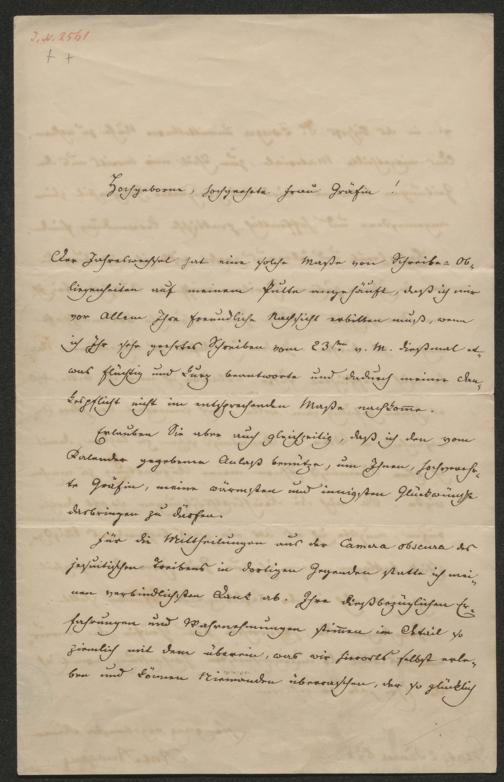 J. N. 2561
Hochgeborne, hochgeehrte Frau Gräfin!
Der Jahreswechsel hat eine solche Maße von Schreibe-Ob-
liegenheiten auf meinem Pulte angehäuft, daß ich mir
vor Allem Ihre freundliche Nachsicht erbitten muß, wenn
ich Ihr sehr geehrtes Schreiben vom 23ten v. M. dießmal et-
was flüchtig und kurz beantworte und dadurch meiner Dan-
kespflicht nicht im entsprechenden Maße nachkomme.
Erlauben Sie aber auch gleichzeitig, daß ich den vom
Kalender gegebenen Anlaß benütze, um Ihnen, hochgeehr-
te Gräfin, meine wärmsten und innigsten Glückwünsche
darbringen zu dürfen.
Für die Mittheilungen aus der Camera obscura des
jesuitischen Treibens in dortigen Gegenden statte ich mei-
nen verbindlichsten Dank ab. Ihre dießbezüglichen Er-
fahrungen und Wahrnehmungen stimmen im Detail so
ziemlich mit dem überein, was wir hierorts selbst erle-
ben und können Niemanden überraschen, der so glücklich